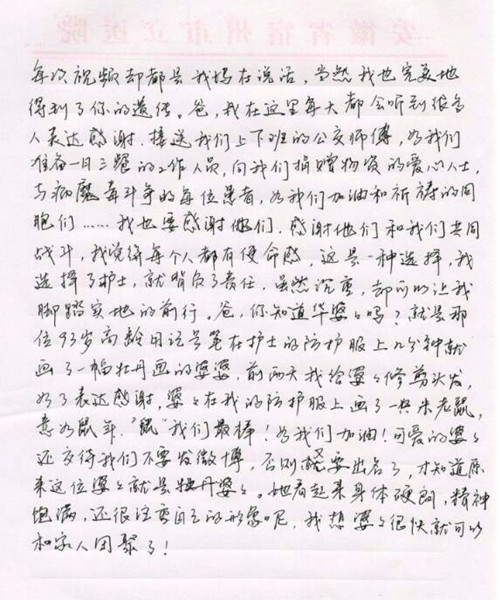 安徽省宿州市立医院
每次视频却都是我妈在说话，当然我也完美地
得到了你的遗传。爸，我在这里每天都会听到很多
人表达感谢，接送我们上下班的公交师傅，为我们
准备一日三餐的工作人员，向我们捐赠物资的爱心人士，
与病魔奋斗争的每位患者，为我们加油和祈祷的同
胞们……我也要感谢他们，感谢他们和我们共同
战斗，我觉得每个人都有使命感，这是一种选择，我
选择了护士，就背负了责任，虽然沉重，却可以让我
脚踏实地的前行。爸，你知道华婆々吗？就是那
位93岁高龄用记号笔在护士的防护服上几分钟就
画了一幅牡丹画的婆婆，前两天我给婆々修剪头发，
为了表达感谢，婆々在我的防护服上画了一只米老鼠，
意为鼠年，“鼠”我们最棒！为我们加油！可爱的婆々
还交待我们不要发微博，否则她要出名了，才知道原
来这位婆々就是牡丹婆々。她看起来身体硬朗，精神
饱满，还很注重自己的形象呢，我想婆々很快就可以
和家人团聚了！